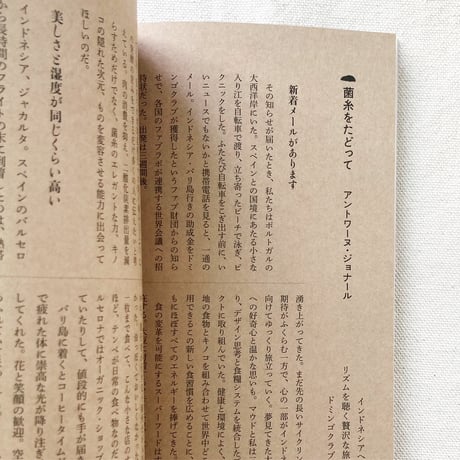 菌糸をたどって　アントワーヌ・ジョナール
新着メールがあります
その知らせが届いたとき、私たちはポルトガルの
大西洋岸にいた。スペインとの国境にあたる小さな
入り江を自転車で渡り、立ち寄ったビーチで泳ぎ、ピ
クニックをした。ふたたび自転車をこぎ出す前に、い
いニュースでもないかと携帯電話を見ると、一通の
インドネシア、バリ島行きの助成金をドミ
ンゴクラブが獲得したというファブ財団からの知ら
せで、各国のファブラボが連携する世界会議への招
待状だった。出発は三週間後。
インドネシアへ
リズムを聴く贅沢な旅
ドミンゴクラブ
湧き上がってきた。まだ先の長いサイクリ
期待がふくらむ一方で、心の一部がインド
向けてゆっくり旅立っていく。夢見てきた
への好奇心と温かな思いも。マウドと私は
り、デザイン思考と食糧システムを統合した
クトに取り組んでいた。健康と環境によく、
地の食物とキノコを組み合わせて世界中ど
用できるこの新しい食習慣を広めることに
もにほぼすべてのエネルギーを捧げてきた。
食の変革を可能にするスーパーフード
らすためだけでなく、菌糸のエレガントな力、キノ
コの隠れた次元、ものを変容させる能力に出会って
ほしいのだ。
美しさと湿度が同じくらい高い
インドネシア、ジャカルタ。スペインのバルセロ
から長時間のフライトの末に到着
ほど、テンペが日常の食べ物なのだ
ルセロナではオーガニック・ショップ
ていたりして、値段的にも手が届
バリ島に着くとコーヒータイム
で疲れた体に崇高な光が降り注ぎ
してくれた。花と笑顔の歓迎。空